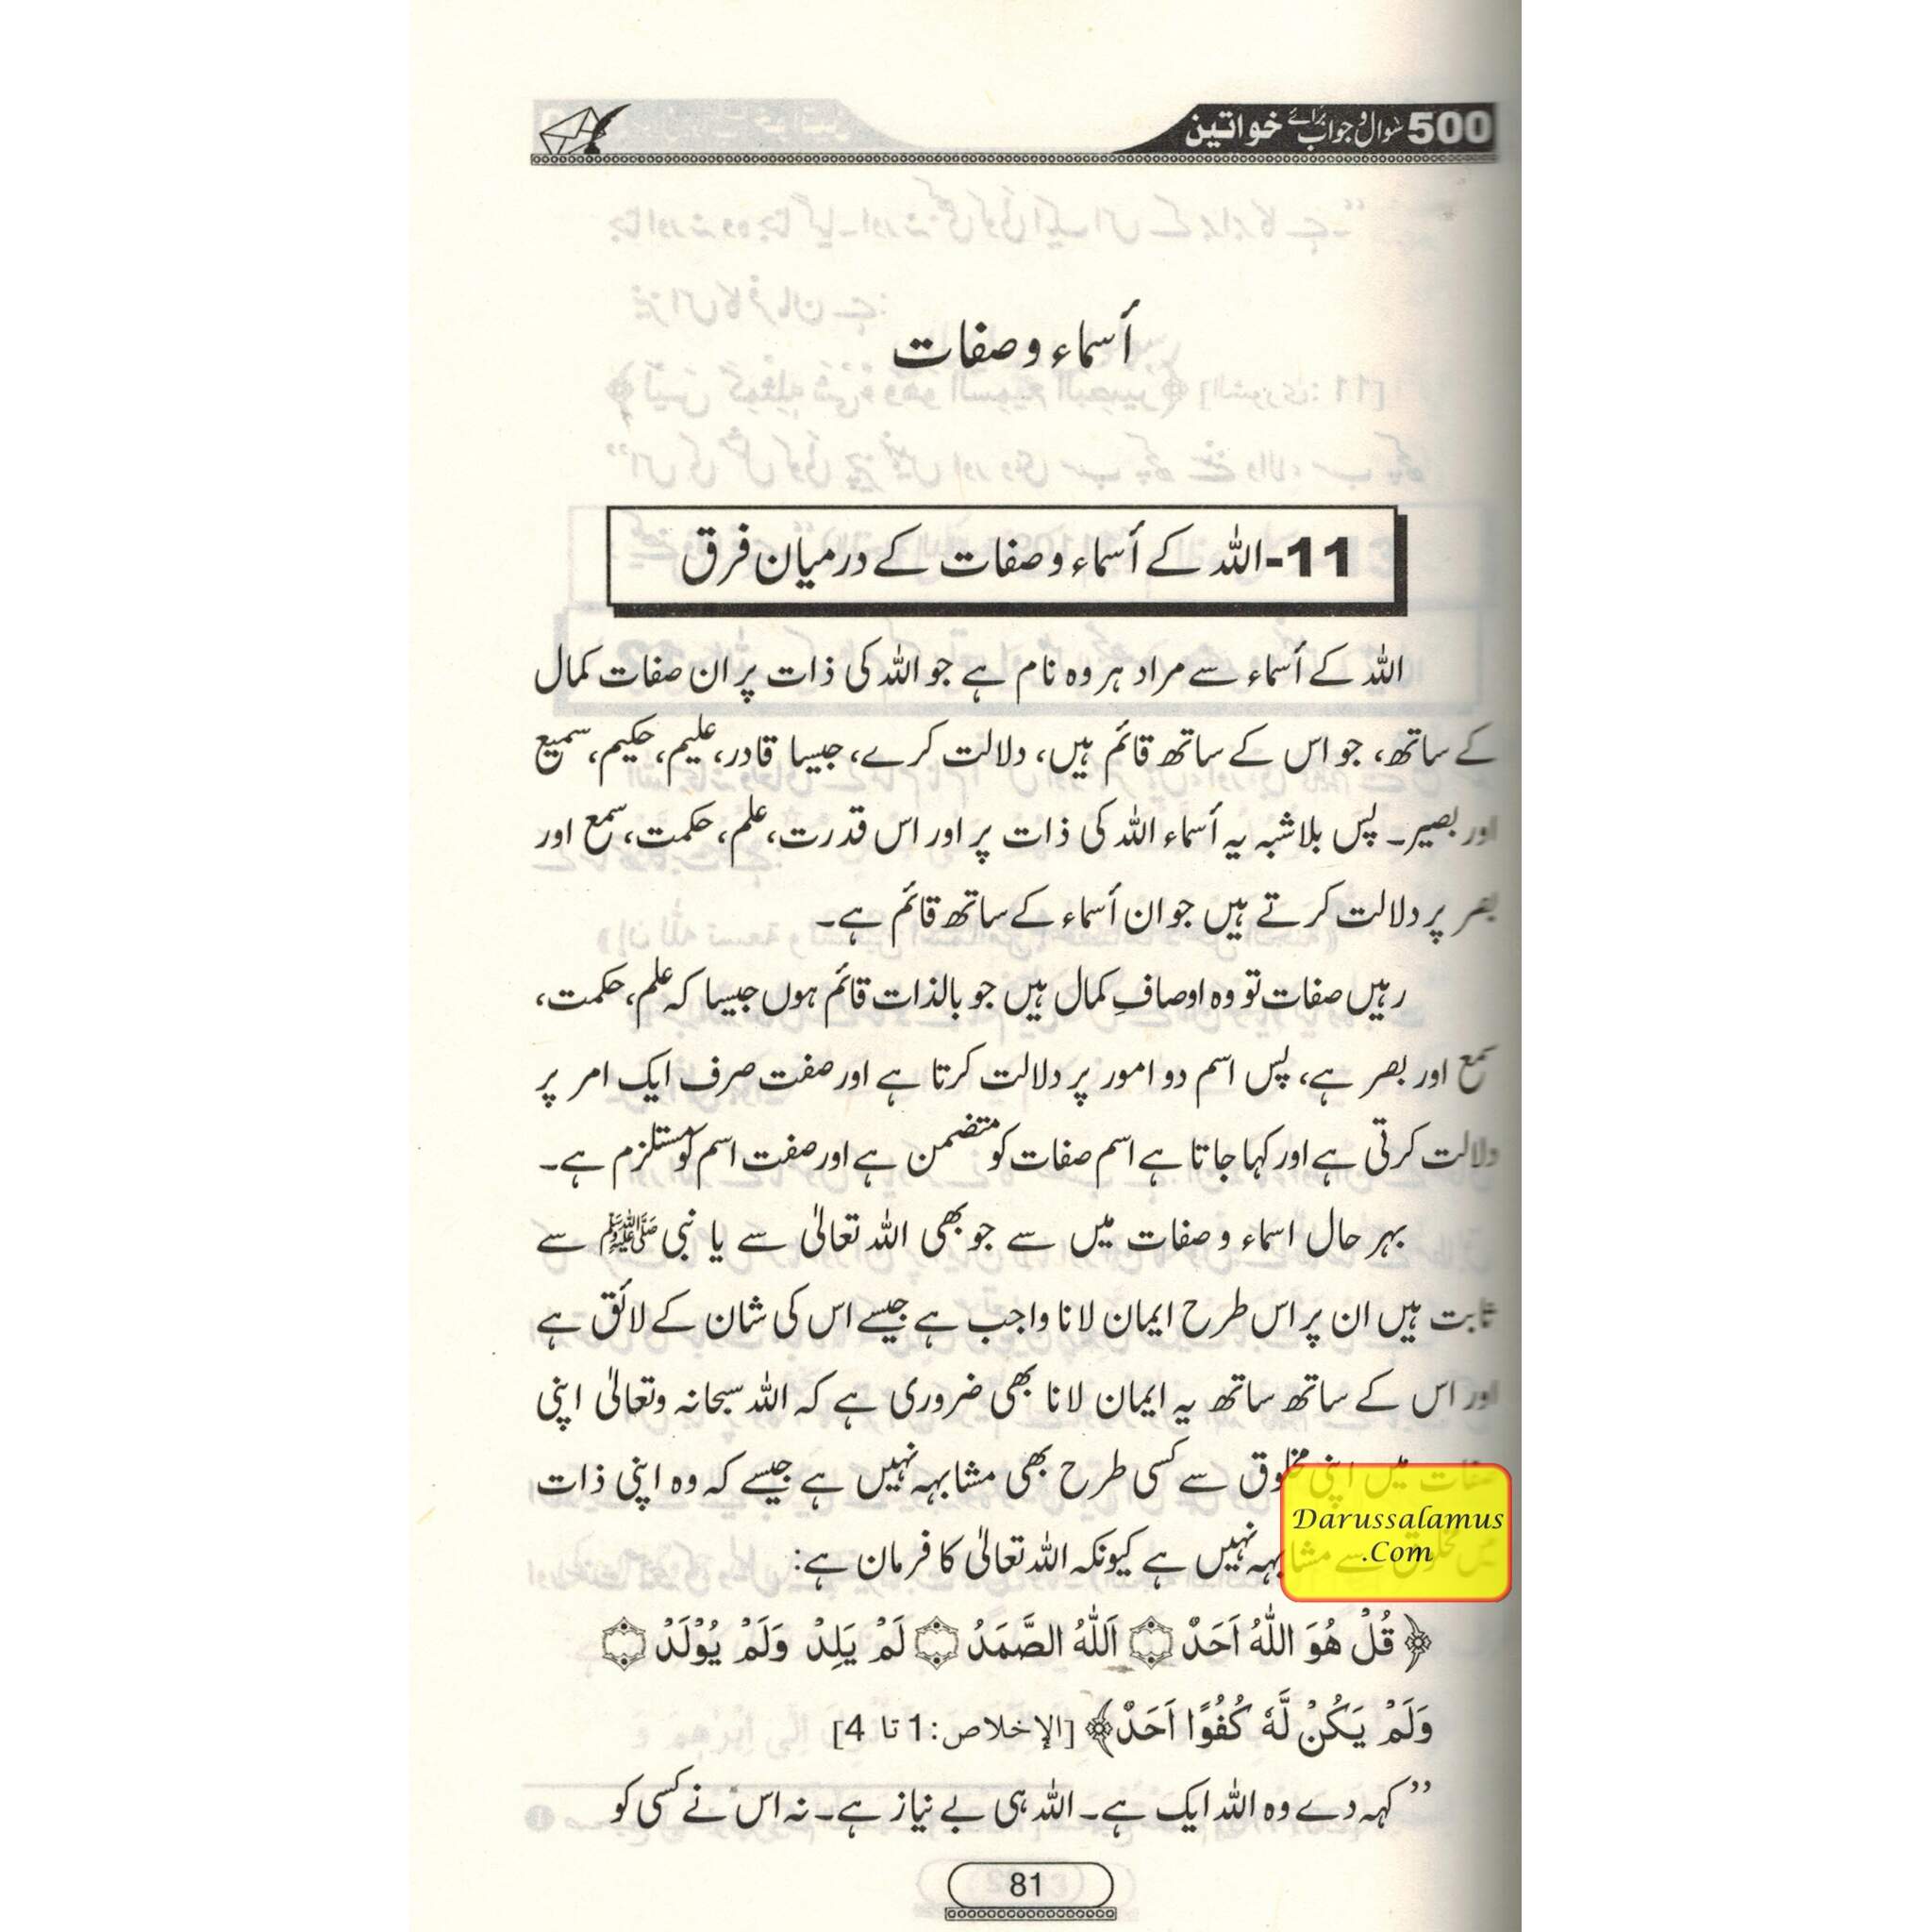 500 سوال و جواب برائے خواتین
أسماء و صفات
11-اللہ کے أسماء و صفات کے درمیان فرق
اللہ کے أسماء سے مراد ہر وہ نام ہے جو اللہ کی ذات پر ان صفات کمال
کے ساتھ، جو اس کے ساتھ قائم ہیں، دلالت کرے، جیسا قادر، علیم، حکیم، سمیع
اور بصیر۔ پس بلاشبہ یہ أسماء اللہ کی ذات پر اور اس قدرت، علم، حکمت، سمع اور
بصر پر دلالت کرتے ہیں جو ان أسماء کے ساتھ قائم ہے۔
رہیں صفات تو وہ اوصافِ کمال ہیں جو بالذات قائم ہوں جیسا کہ علم، حکمت،
سمع اور بصر ہے، پس اسم دو امور پر دلالت کرتا ہے اور صفت صرف ایک امر پر
دلالت کرتی ہے اور کہا جاتا ہے اسم صفات کو متضمن ہے اور صفت اسم کو مستلزم ہے۔
بہر حال اسماء و صفات میں سے جو بھی اللہ تعالیٰ سے یا نبی ﷺ سے
ثابت ہیں ان پر اس طرح ایمان لانا واجب ہے جیسے اس کی شان کے لائق ہے
اور اس کے ساتھ ساتھ یہ ایمان لانا بھی ضروری ہے کہ اللہ سبحانہ وتعالیٰ اپنی
صفات میں اپنی مخلوق سے کسی طرح بھی مشابہہ نہیں ہے جیسے کہ وہ اپنی ذات
مخلوق سے مشابہہ نہیں ہے کیونکہ اللہ تعالیٰ کا فرمان ہے:
Darussalamus
.Com
﴿قُلْ هُوَ اللّٰهُ اَحَدٌ ۝ اَللّٰهُ الصَّمَدُ ۝ لَمْ يَلِدْ وَلَمْ يُوْلَدْ ۝
وَلَمْ يَكُنْ لَّهٗ كُفُوًا اَحَدٌ﴾ [الإخلاص: 1 تا 4]
”کہہ دے وہ اللہ ایک ہے۔ اللہ ہی بے نیاز ہے۔ نہ اس نے کسی کو
81